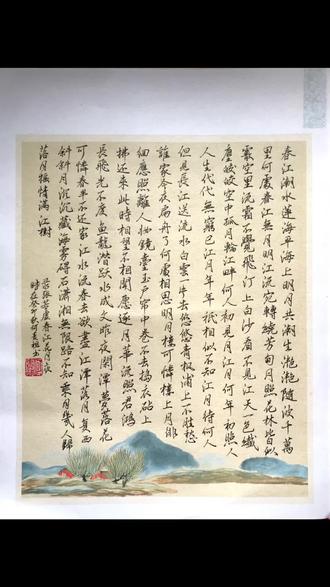 春江潮水連海平海上明月共潮生灩灩隨波千萬
里何處春江無月明江流宛轉繞芳甸月照花林皆似
霰空里流霜不覺飛汀上白沙看不見江天一色纖
塵皎皎空中孤月輪江畔何人初見月江月何年初照人
人生代代無窮已江月年年祇相似不知江月待何人
但見長江送流水白雲一片去悠悠青楓浦上不勝愁
誰家今夜扁舟子何處相思明月樓可憐樓上月徘
徊應照離人妝鏡臺玉戶帘中卷不去擣衣砧上
拂還來此時相望不相聞愿逐月華流照君鴻
長飛光不度魚龍潛躍水成文昨夜閑潭夢落花
可憐春半不還家江水流春去欲盡江潭落月复西
斜斜月沉沉藏海霧碣石瀟湘無限路不知乘月幾人歸
落月搖情滿江樹
張若虛春江花月夜
時在癸卯秋何書